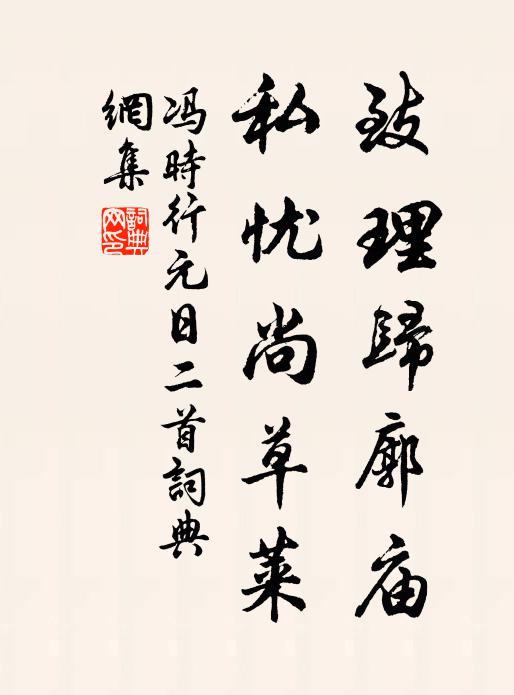 致理歸廓庙
私忧尚草莱
冯時行元日二首詞典
網集
詞典
网印